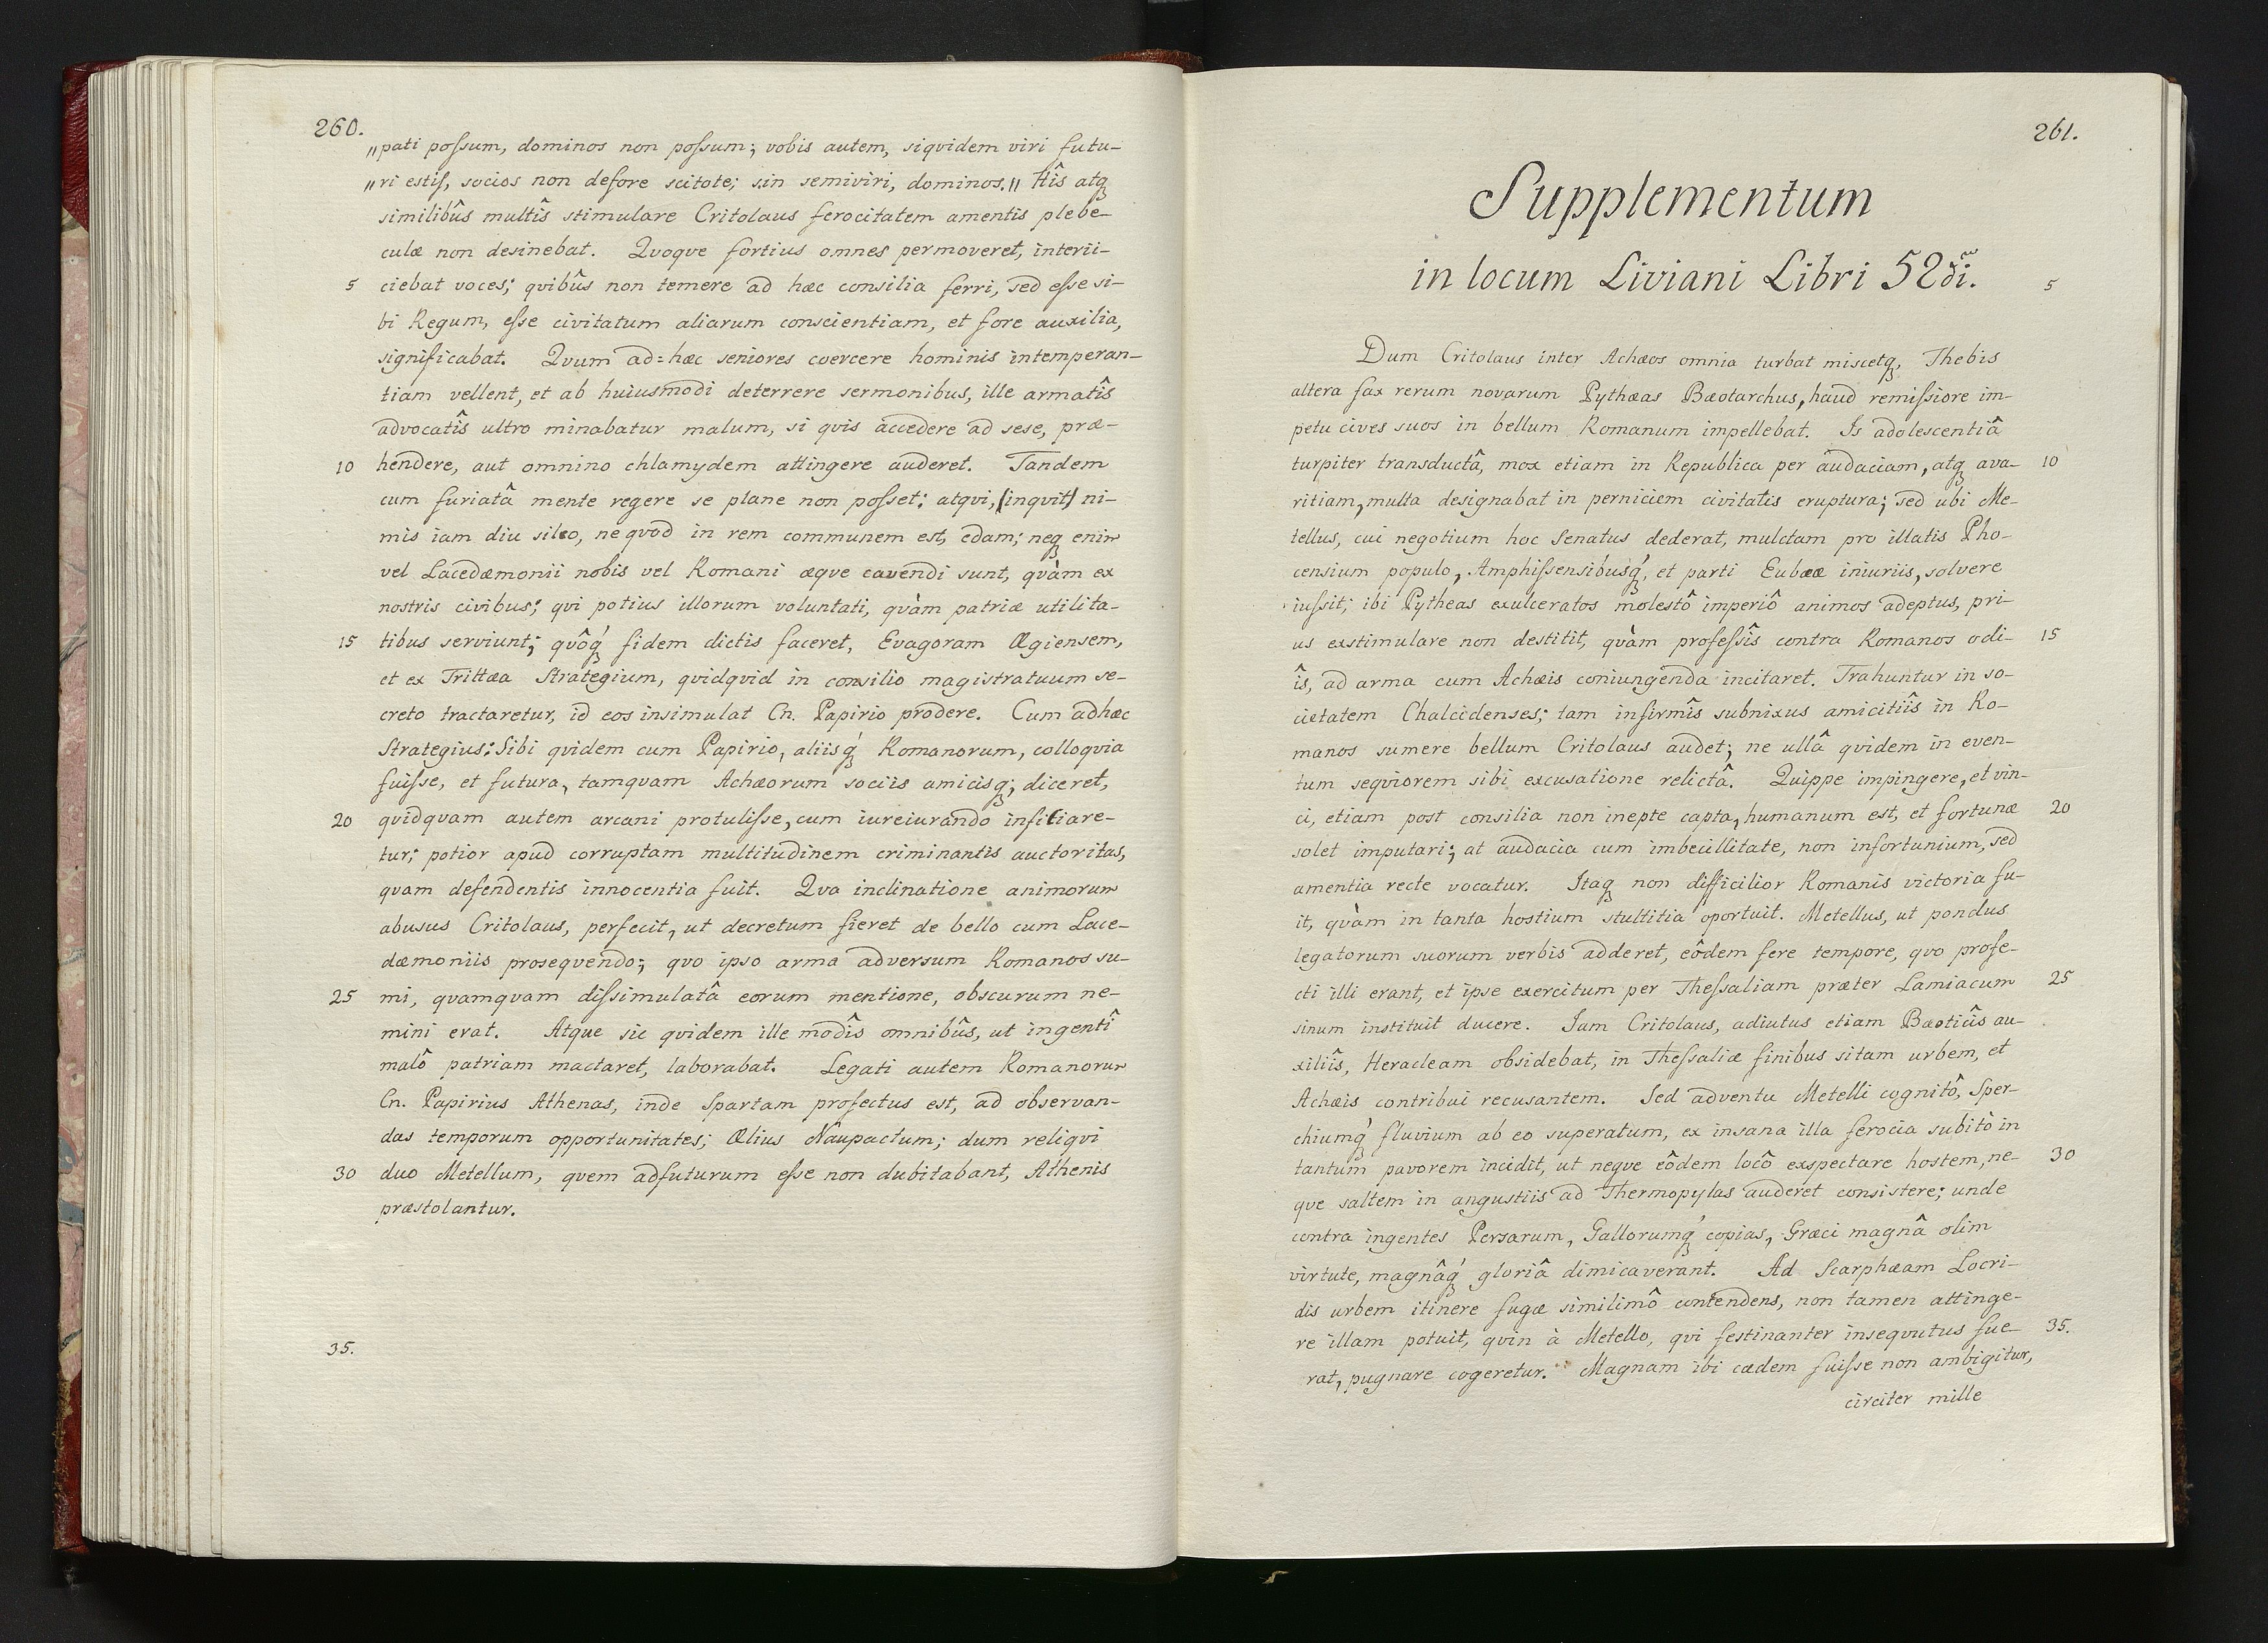 260.
„pati possum, dominos non possum; vobis autem, siqvidem viri futu-
„ri estis, socios non defore scitote; sin semiviri, dominos.„ Hîs atq́
similibûs multîs stimulare Critolaus ferocitatem amentis plebe-
culæ non desinebat. Qvoqve fortius omnes permoveret, interii-
5 ciebat voces; qvibûs non temere ad hæc consilia ferri, sed esse si-
bi Regum, esse civitatum aliarum conscientiam, et fore auxilia,
significabat. Qvum ad=hæc seniores coercere hominis intemperan-
tiam vellent, et ab huiusmodi deterrere sermonibus, ille armatîs
advocatîs ultro minabatur malum, si qvis accedere ad sese, præ-
10 hendere, aut omnino chlamydem attingere auderet. Tandem
cum furiatâ mente regere se plane non posset: atqvi, (inqvit) ni-
mis iam diu sileo, ne qvod in rem communem est, edam; neq enim
vel Lacedæmonii nobis vel Romani æqve cavendi sunt, qvàm ex
nostris civibus; qvi potius illorum voluntati, qvàm patriæ utilita-
15 tibus serviunt; qvôq́ fidem dictis faceret, Evagoram Ægiensem,
et ex Trittæa Strategium, qvidqvid in consilio magistratuum se-
creto tractaretur, id eos insimulat Cn. Papirio prodere. Cum adhæc
Strategius: Sibi qvidem cum Papirio, aliisq́ Romanorum, colloqvia
fuisse, et futura, tamqvam Achæorum sociis amicisq; diceret,
20 qvidqvam autem arcani protulisse, cum iureiurando infitiare-
tur; potior apud corruptam multitudinem criminantis auctoritas,
qvam defendentis innocentia fuit. Qva inclinatione animorum
abusus Critolaus, perfecit, ut decretum fieret de bello cum Lace-
dæmoniis proseqvendo; qvo ipso arma adversum Romanos su-
25 mi, qvamqvam dissimulatâ eorum mentione, obscurum ne-
mini erat. Atque sic qvidem ille modîs omnibûs, ut ingentî
malô patriam mactaret, laborabat. Legati autem Romanorum
Cn. Papirius Athenas, inde Spartam profectus est, ad observan-
das temporum opportunitates; Ælius Naupactum; dum reliqvi
30 duo Metellum, qvem adfuturum esse non dubitabant, Athenis
præstolantur.
35.
261.
Supplementum
in locum Liviani Libri 52di. 5
Dum Critolaus inter Achæos omnia turbat miscetq, Thebis
altera fax rerum novarum Pythæas Bæotarchus, haud remissiore im-
petu cives suos in bellum Romanum impellebat. Is adolescentiâ
turpiter transductâ, mox etiam in Republica per audaciam, atq ava- 10
ritiam, multa designabat in perniciem civitatis eruptura; sed ubi Me-
tellus, cui negotium hoc Senatus dederat, mulctam pro illatis Pho-
censium populo, Amphissensibusq́, et parti Eubææ iniuriis, solvere
iussit; ibi Pytheas exulceratos molestô imperiô animos adeptus, pri-
us exstimulare non destitit, qvàm professîs contra Romanos odi- 15
îs, ad arma cum Achæis coniungenda incitaret. Trahuntur in so-
cietatem Chalcidenses; tam infirmîs subnixus amicitiîs in Ro-
manos sumere bellum Critolaus audet; ne ullâ qvidem in even-
tum seqviorem sibi excusatione relictâ. Quippe impingere, et vin-
ci, etiam post consilia non inepte capta, humanum est, et fortunæ 20
solet imputari; at audacia cum imbecillitate, non infortunium, sed
amentia recte vocatur. Itaq non difficilior Romanis victoria fu-
it, qvàm in tanta hostium stultitia oportuit. Metellus, ut pondus
legatorum suorum verbis adderet, eôdem fere tempore, qvo profe-
cti illi erant, et ipse exercitum per Thessaliam præter Lamiacum 25
sinum instituit ducere. Iam Critolaus, adiutus etiam Bæoticîs au-
xiliîs, Heracleam obsidebat, in Thessaliæ finibus sitam urbem, et
Achæis contribui recusantem. Sed adventu Metelli cognitô, Sper-
chiumq́ fluvium ab eo superatum, ex insana illa ferocia subitò in
tantum pavorem incidit, ut neqve eôdem locô exspectare hostem, ne- 30
qve saltem in angustiis ad Thermopylas auderet consistere; unde
contra ingentes Persarum, Gallorumq́ copias, Græci magnâ olim
virtute, magnâq́ gloriâ dimicaverant. Ad Scarphæam Locri-
dis urbem itinere fugæ similimô contendens, non tamen attinge-
re illam potuit, qvin à Metello, qvi festinanter inseqvutus fue- 35.
rat, pugnare cogeretur. Magnam ibi cædem fuisse non ambigitur,
circiter mille